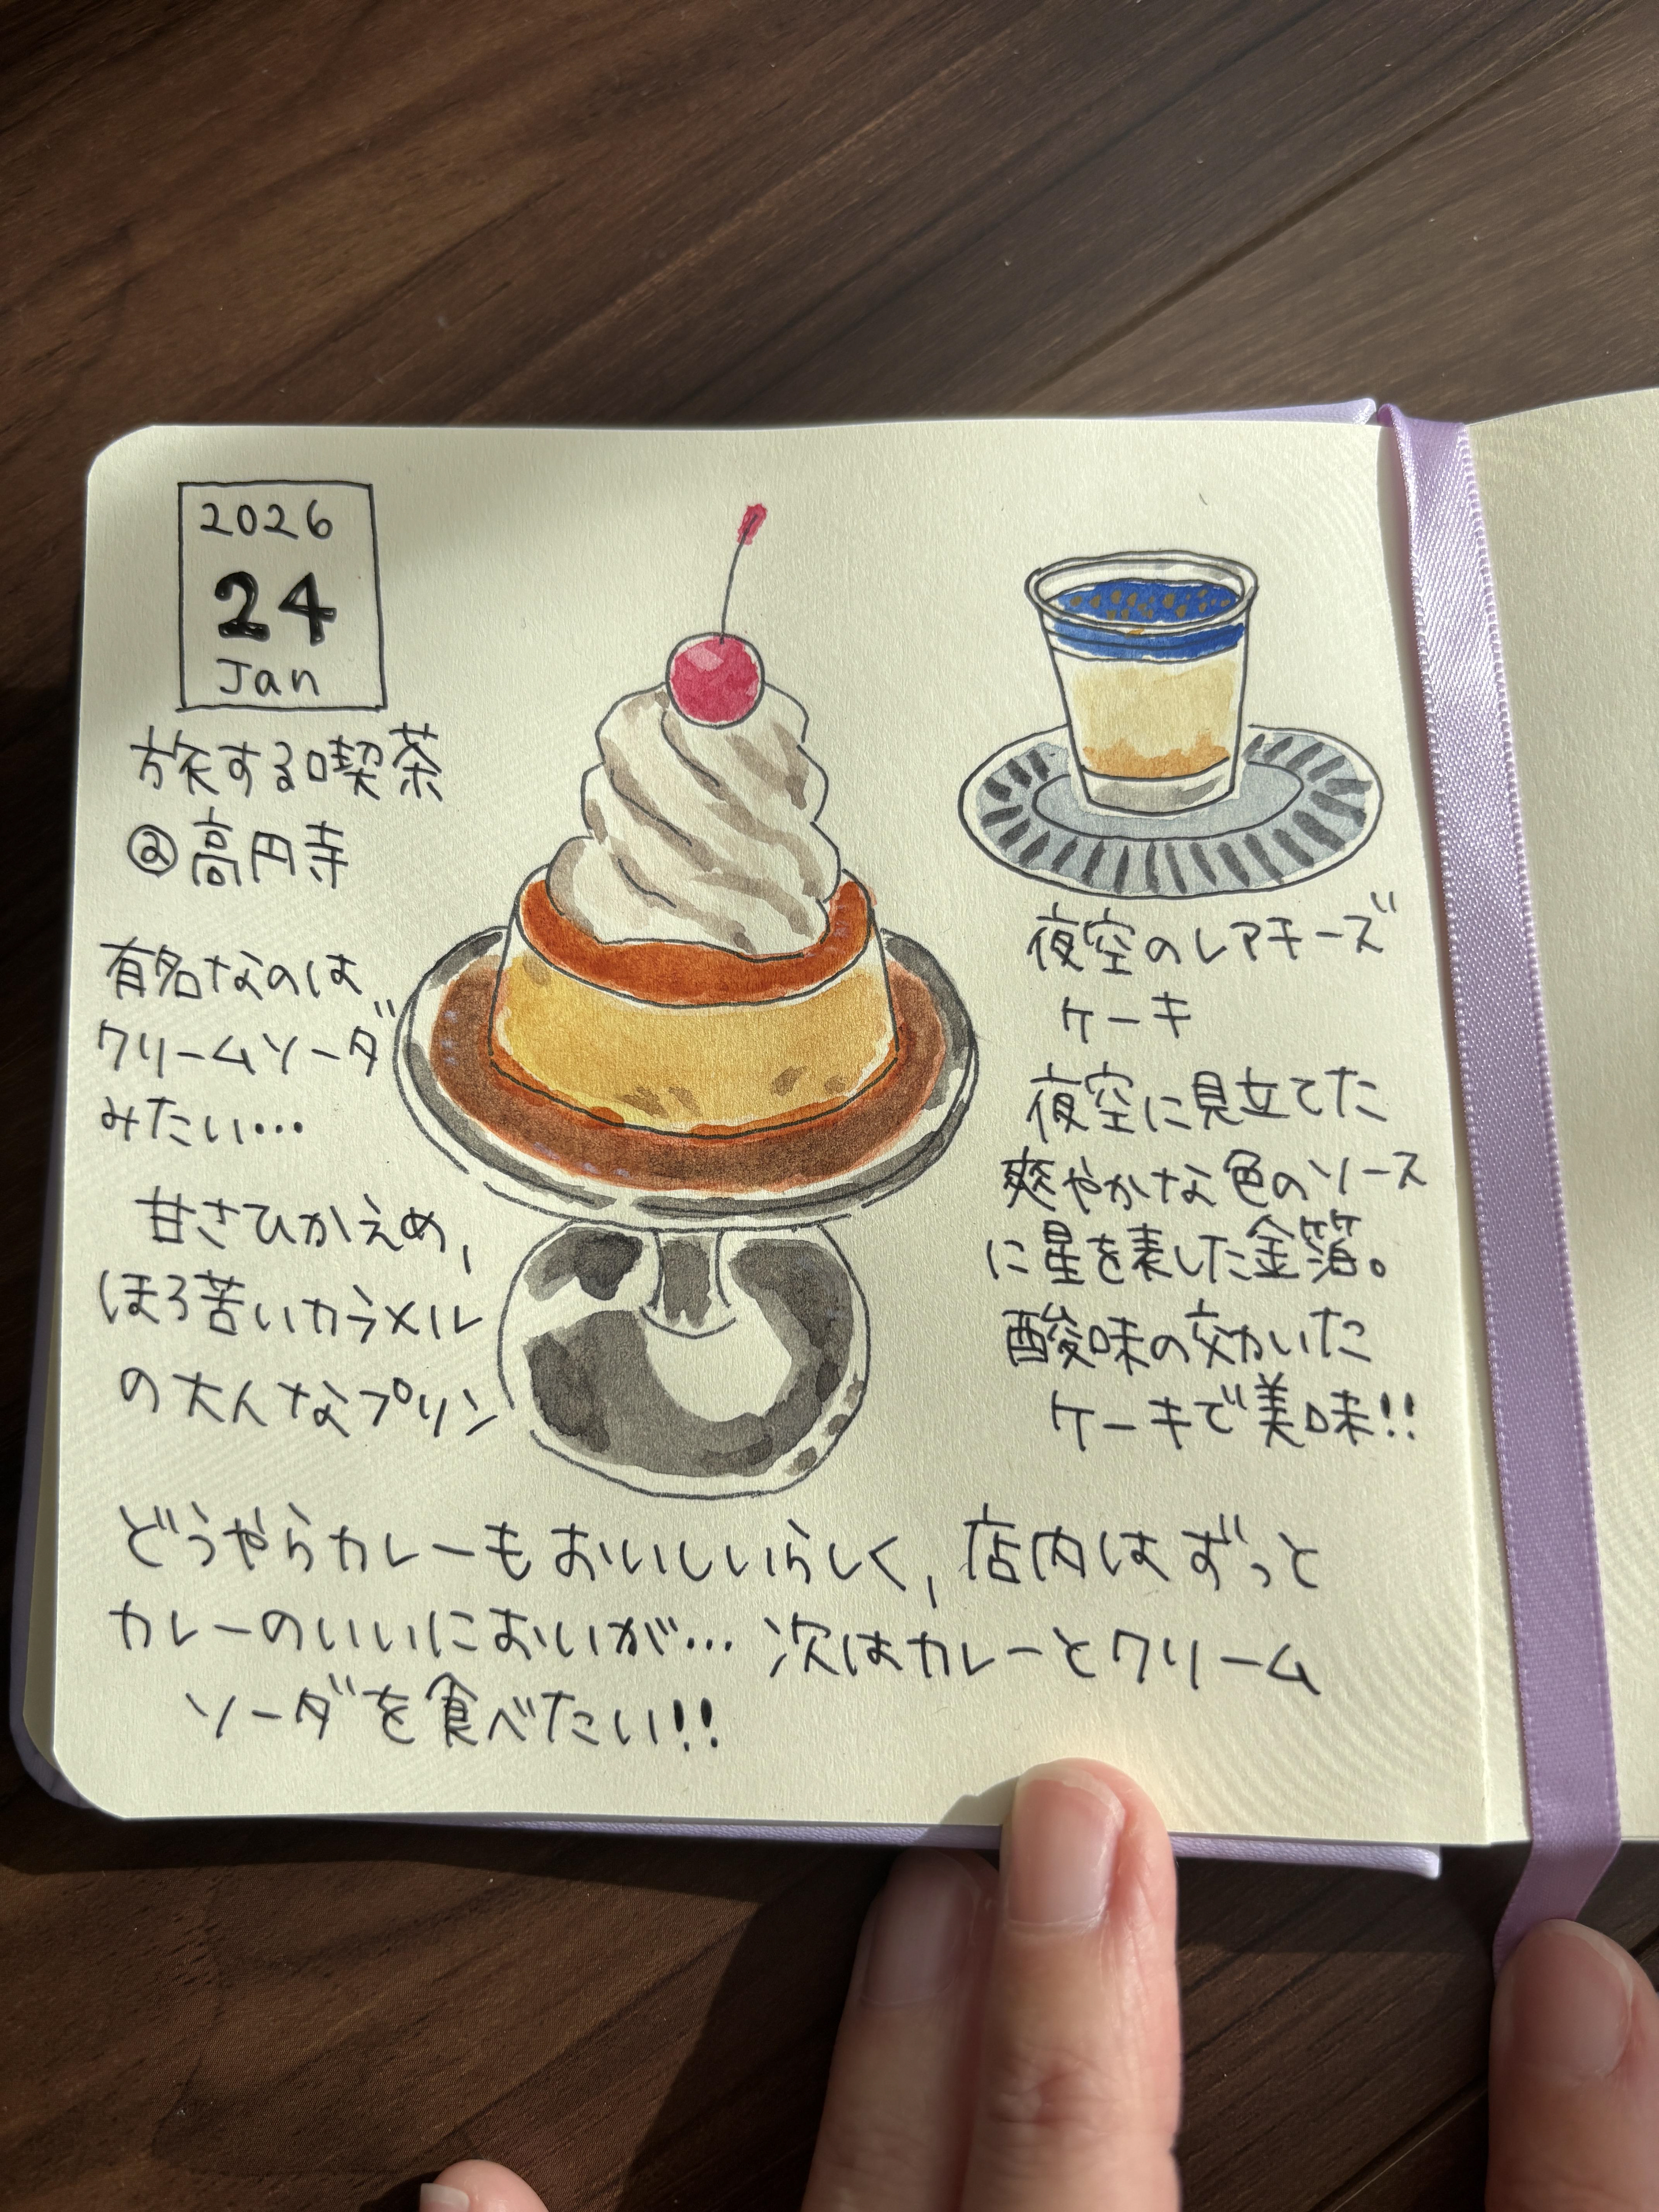 2026
24
Jan
旅する喫茶
@高円寺
有名なのは
クリームソーダ
みたい…
甘さひかえめ,
ほろ苦いカラメル
の大人なプリン
夜空のレアチーズ
ケーキ
夜空に見立てた
爽やかな色のソース
に星を表した金箔。
酸味の効いた
ケーキで美味!!
どうやらカレーもおいしいらしく,店内はずっと
カレーのいいにおいが… 次はカレーとクリーム
ソーダを食べたい!!